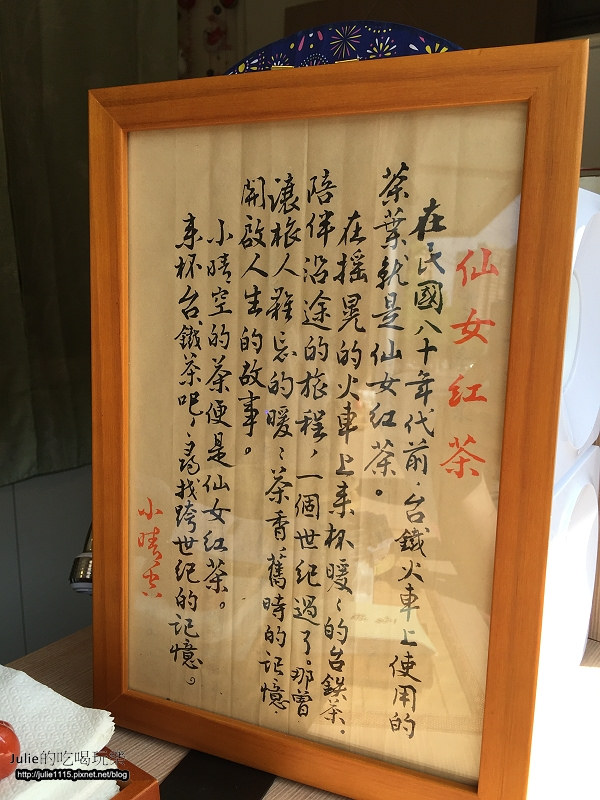 仙女红茶
在民國八十年代前，台鐵火車上使用的
茶葉就是仙女红茶。
在摇晃的火車上来杯暖、的台鉄茶。
陪伴沿途的旅程，一個世紀過了。那曾
讓旅人難忘的暖、茶香，舊時的记憶，
開啟人生的故事。
小晴空的茶便是仙女红茶。
来杯台鐵茶吧，尋找跨世纪的记憶。
小晴空
Julie的吃喝玩樂
http://julie1115.pixnet.net/blog